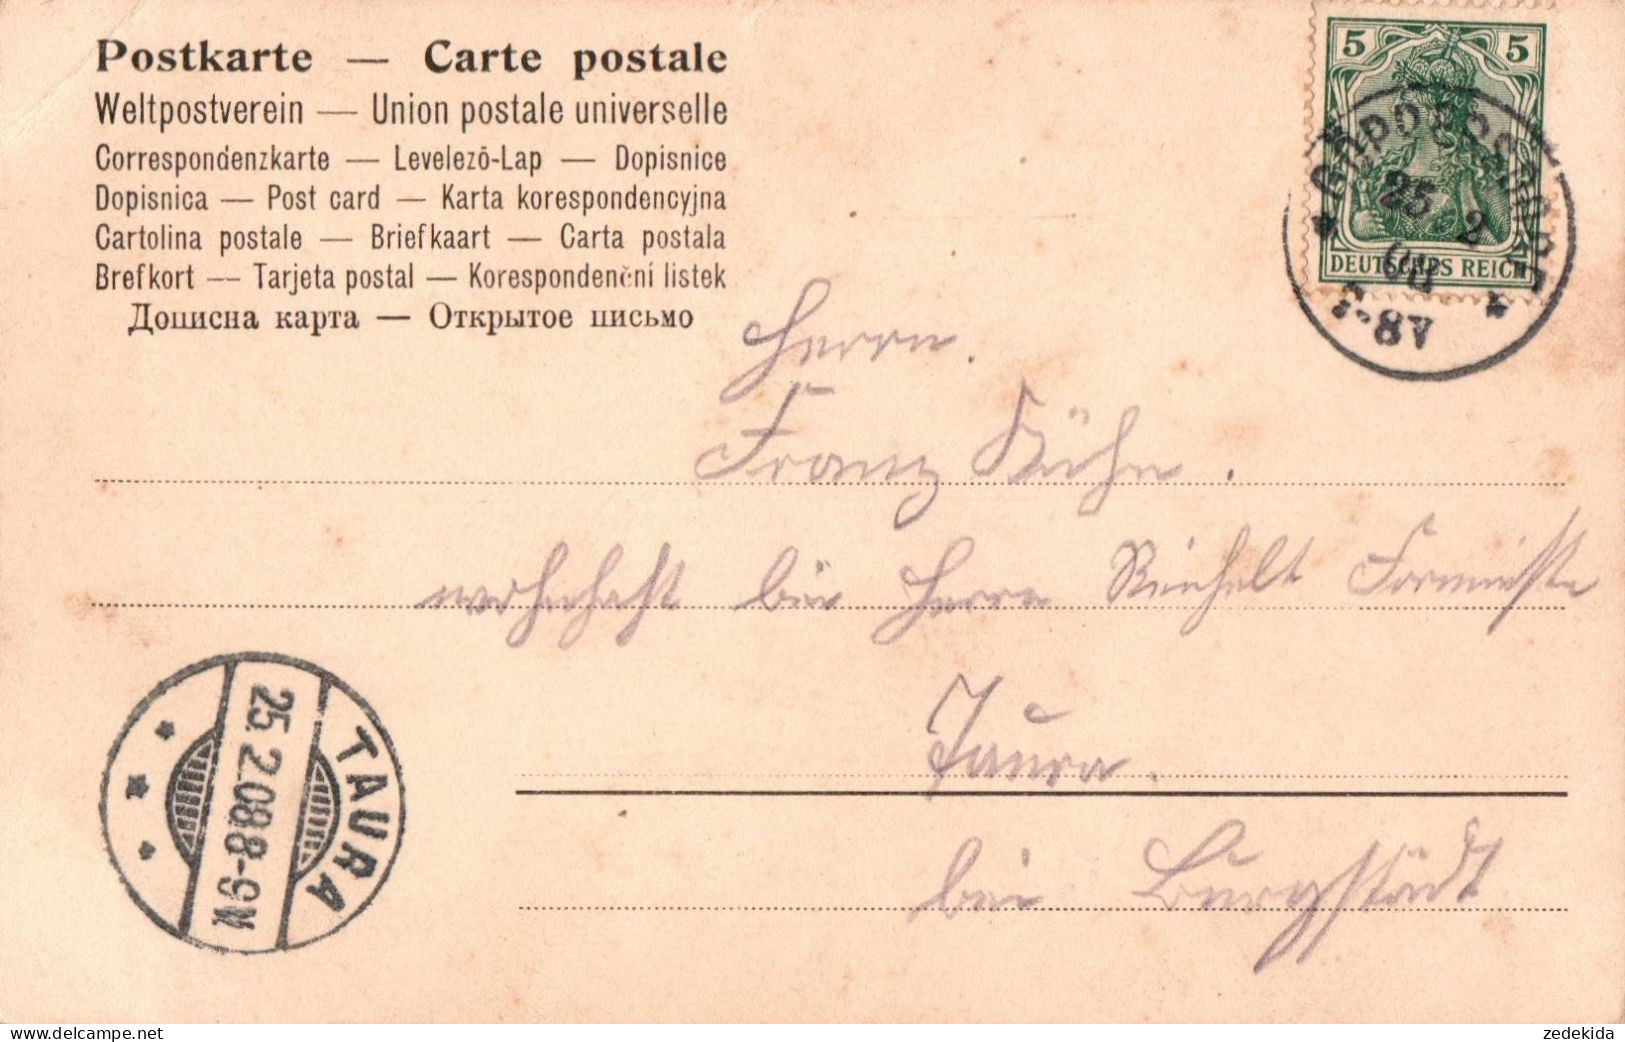 Postkarte — Carte postale
Weltpostverein — Union postale universelle
Correspondenzkarte — Levelező-Lap — Dopisnice
Dopisnica — Post card — Karta korespondencyjna
Cartolina postale — Briefkaart — Carta postala
Brefkort — Tarjeta postal — Korespondenční listek
Дописна карта — Открытое письмо
5 5
DEUTSCHES REICH
25 2
8V
Herrn.
Franz Kühn.
wohnhaft bei Herrn Reichelt
Taura.
bei Burgstädt
TAURA
25.2.08.8-9N
zedekida